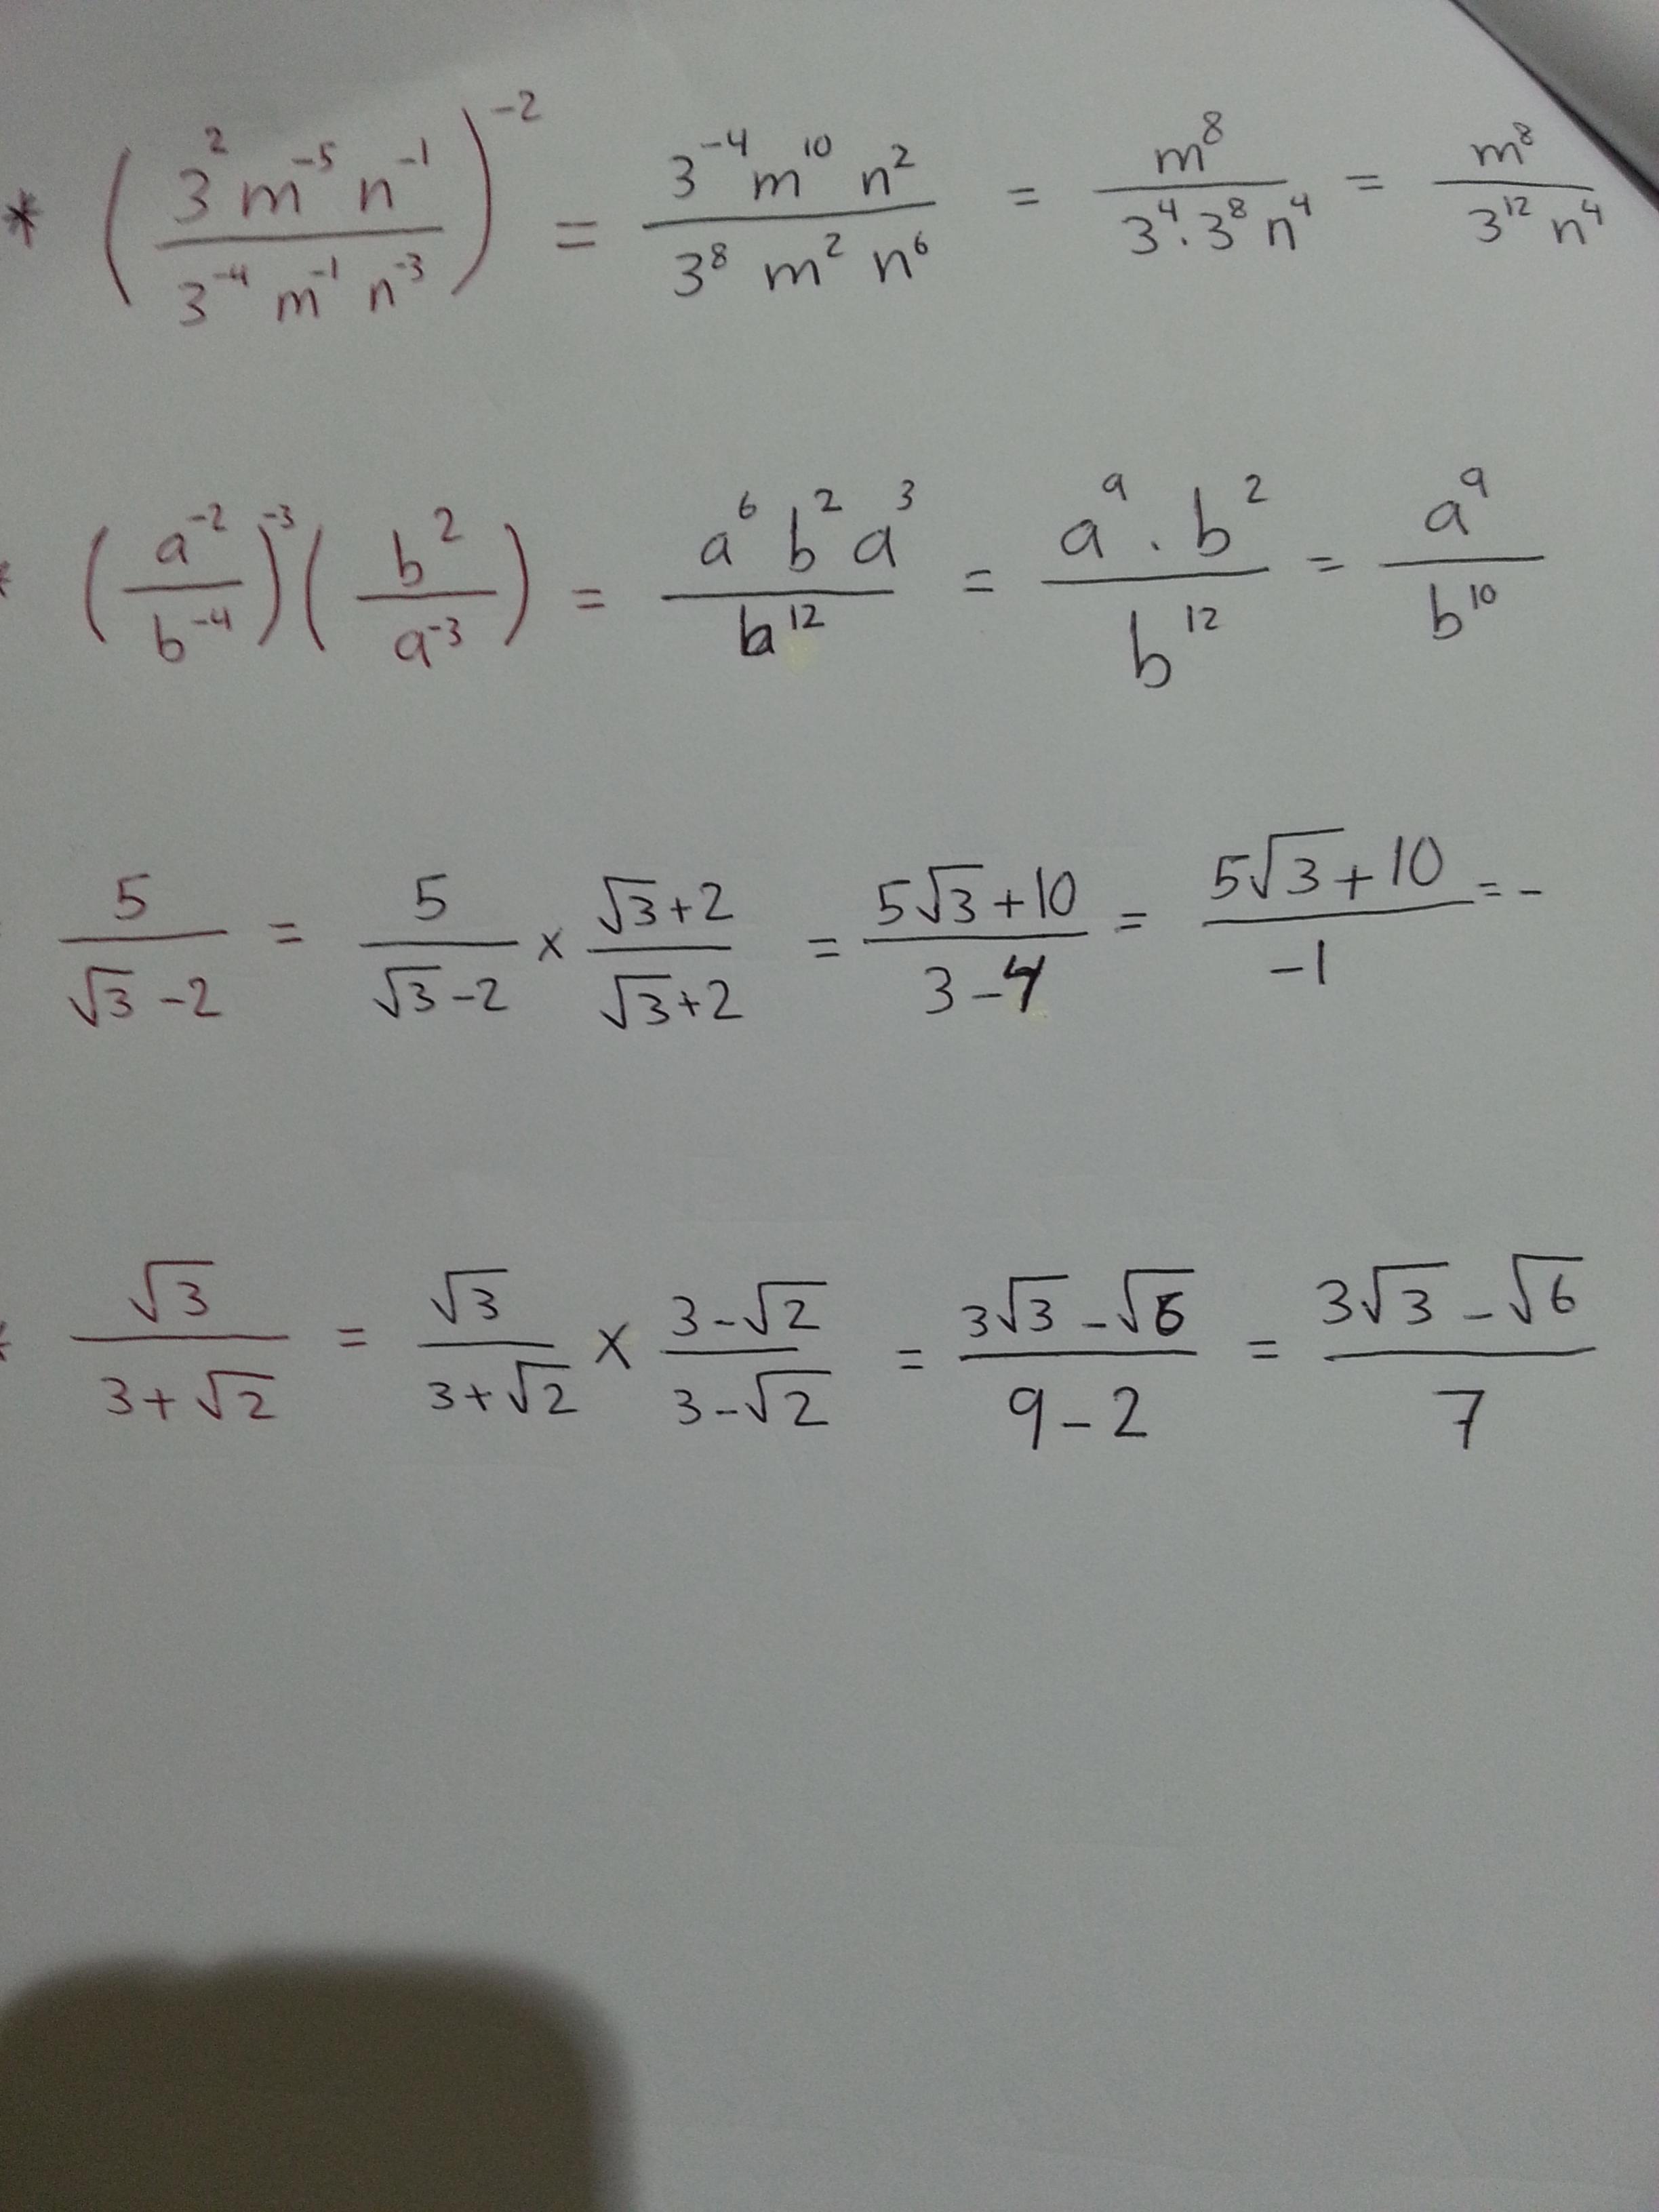 * (3^2 m^-5 n^-1 / 3^-4 m^-1 n^-3)^-2 = 3^-4 m^10 n^2 / 3^8 m^2 n^6 = m^8 / 3^4 . 3^8 n^4 = m^8 / 3^12 n^4
* (a^-2 / b^-4)^-3 (b^2 / a^-3) = a^6 b^2 a^3 / b^12 = a^9 . b^2 / b^12 = a^9 / b^10
5 / (√3 - 2) = 5 / (√3 - 2) × (√3 + 2) / (√3 + 2) = (5√3 + 10) / (3 - 4) = (5√3 + 10) / -1 = -
* √3 / (3 + √2) = √3 / (3 + √2) × (3 - √2) / (3 - √2) = (3√3 - √6) / (9 - 2) = (3√3 - √6) / 7